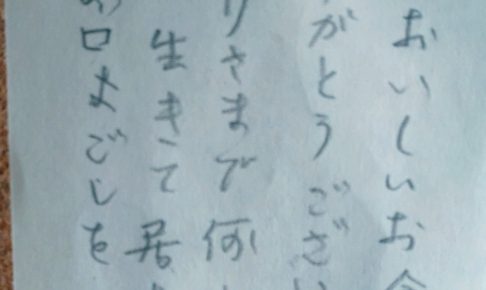 おいしいお
がとうござい
りさまで何
生きて居
お口よごしを